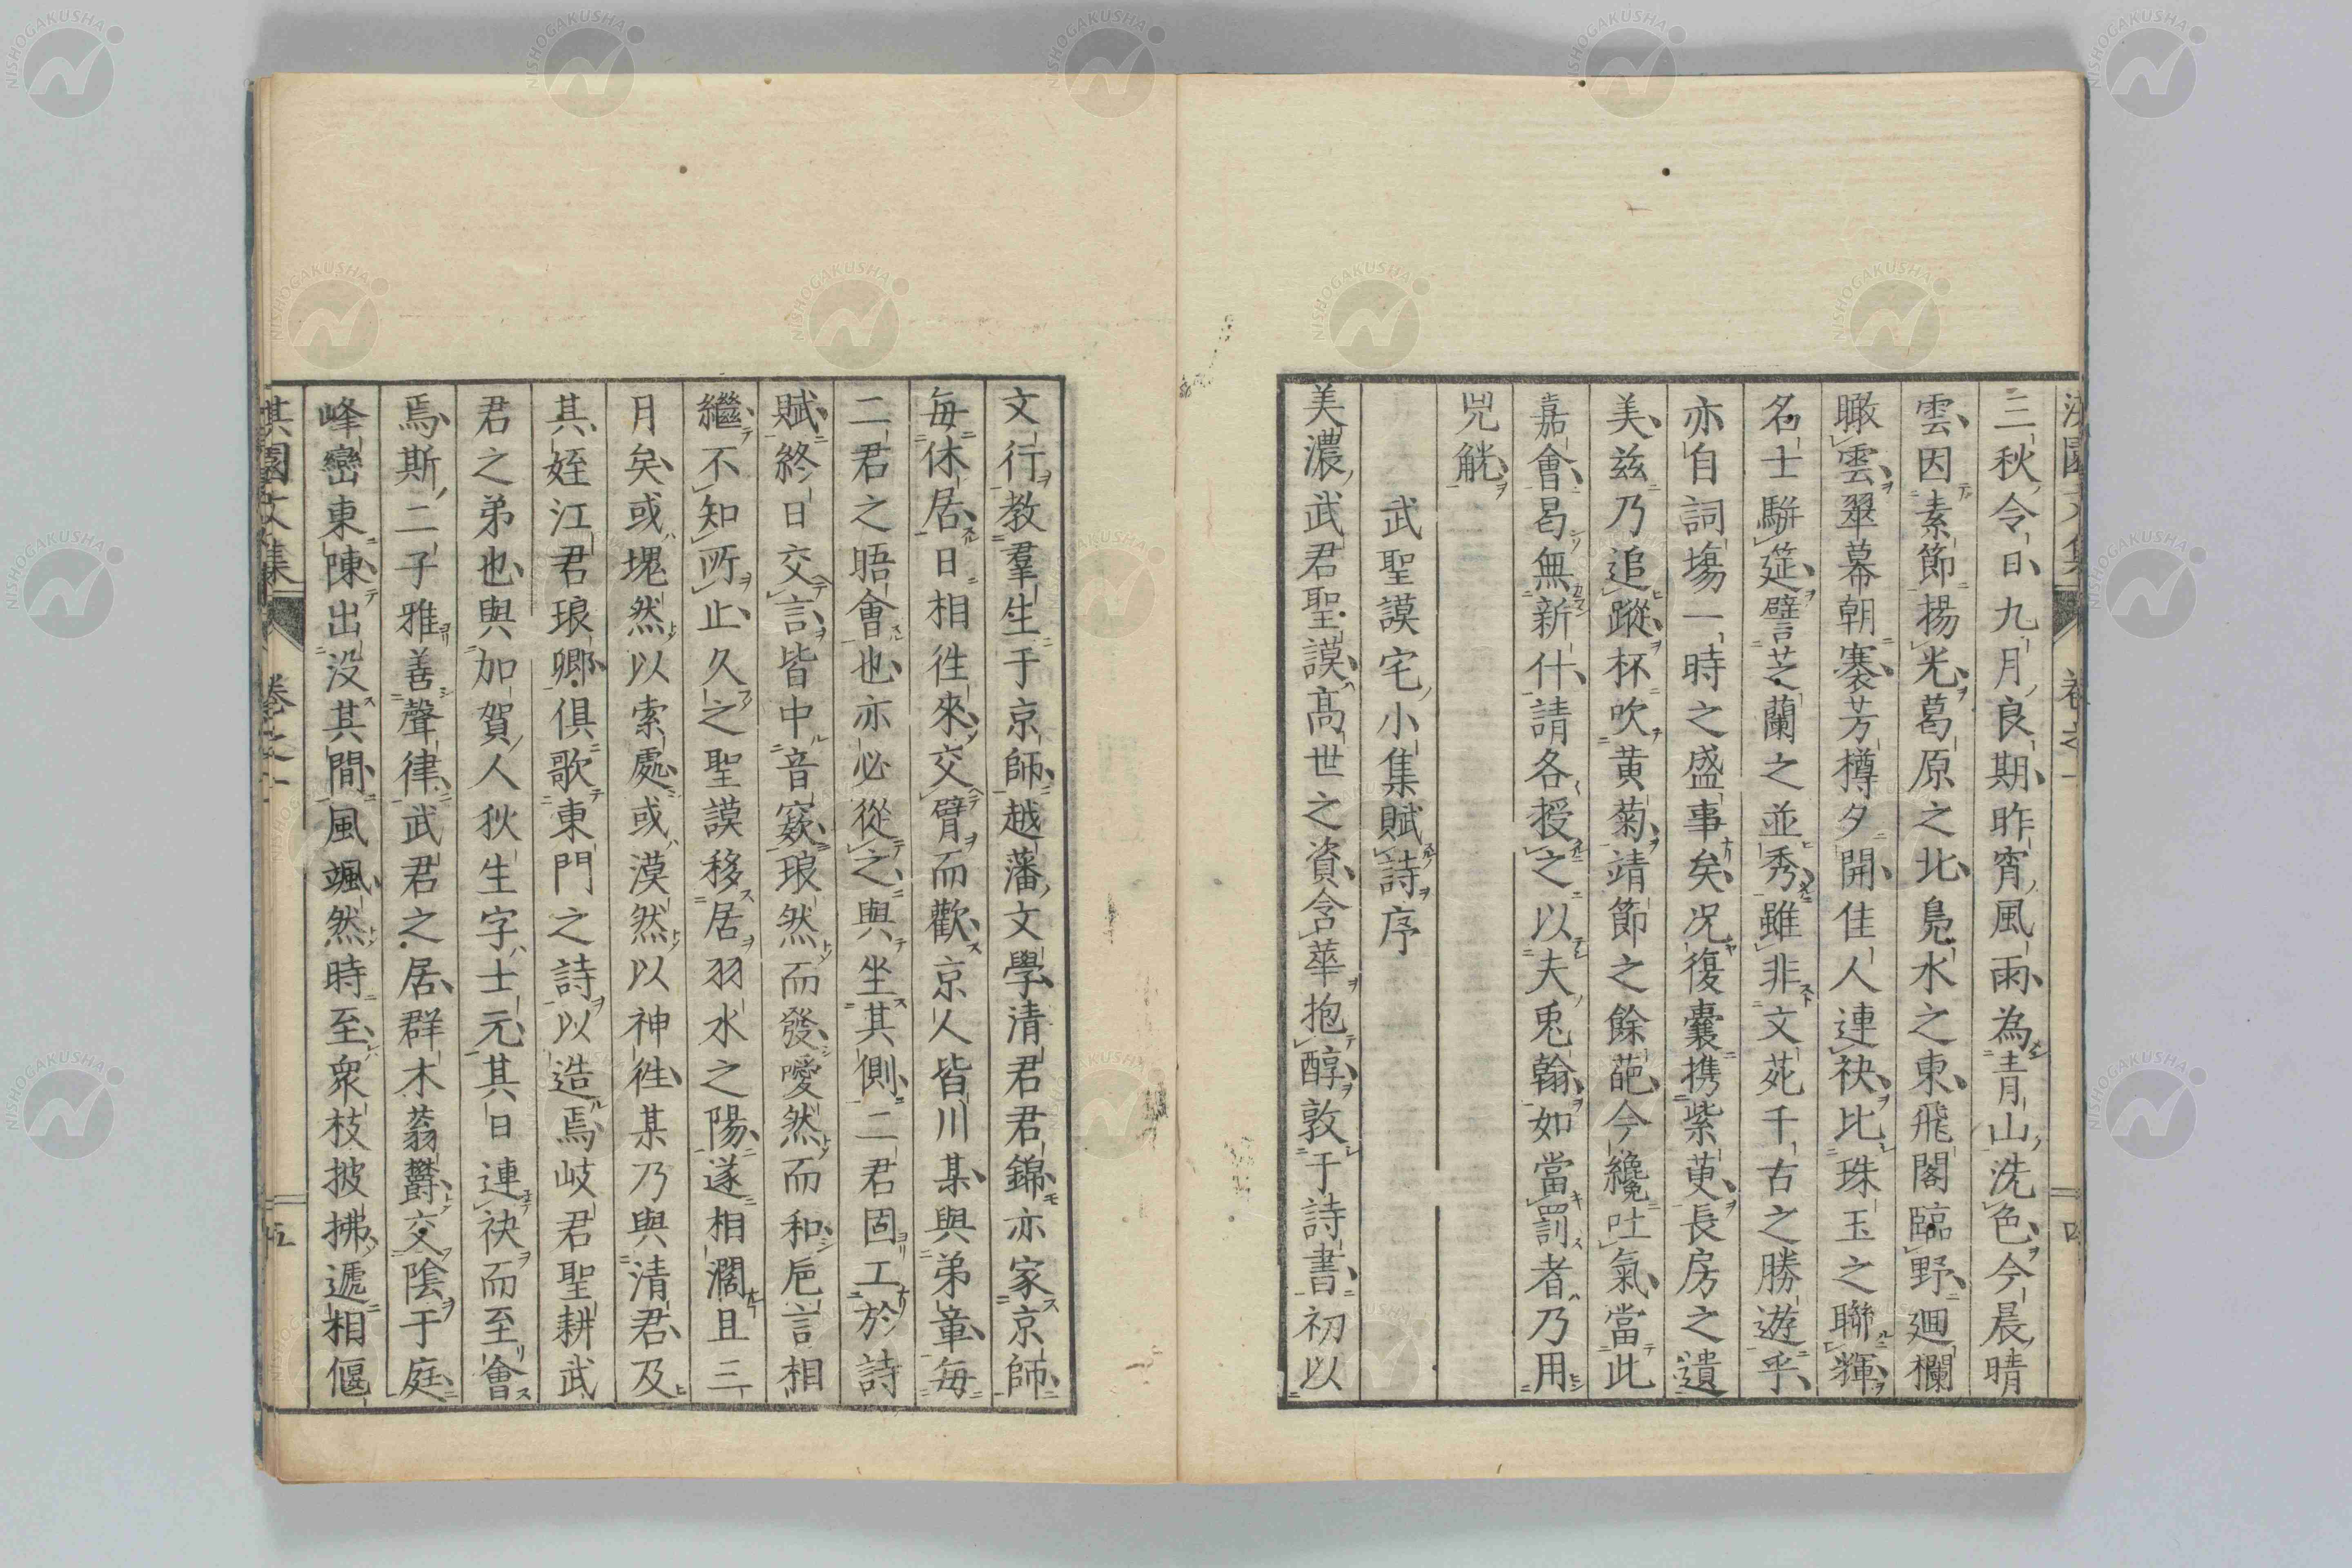 三秋令日九月良期昨宵風雨為青山洗色今晨晴
雲因素節揚光葛原之北鳧水之東飛閣臨野廻欄
瞰雲翠幕朝褰芳樽夕開佳人連袂比珠玉之聯輝
名士駢筵譬芝蘭之並秀雖非文苑千古之勝遊乎
亦自詞塲一時之盛事矣况復嚢携紫萸長房之遺
美兹乃追蹤杯吹黄菊靖節之餘葩今纔吐氣當此
嘉會曷無新什請各授之以夫兎翰如當罰者乃用
兕觥
武聖謨宅小集賦詩序
美濃武君聖謨髙世之資含華抱醇敦于詩書初以
文行教羣生于京師越藩文學清君君錦亦家京師
毎休居日相徃來交臂而歡京人皆川某與弟章毎
二君之晤會也亦必從之與坐其側二君固工於詩
賦終日交言皆中音窾琅然而發噯然而和巵言相
繼不知所止久之聖謨移居羽水之陽遂相濶且三
月矣或塊然以索處或漠然以神徃某乃與清君及
其姪江君琅卿俱歌東門之詩以造焉岐君聖耕武
君之弟也與加賀人秋生字士元其日連袂而至會
焉斯二子雅善聲律武君之居群木蓊欝交陰于庭
峰巒東陳出没其間風颯然時至衆枝披拂遞相偃
淇園文集 卷之一 五
NISHOGAKUSHA